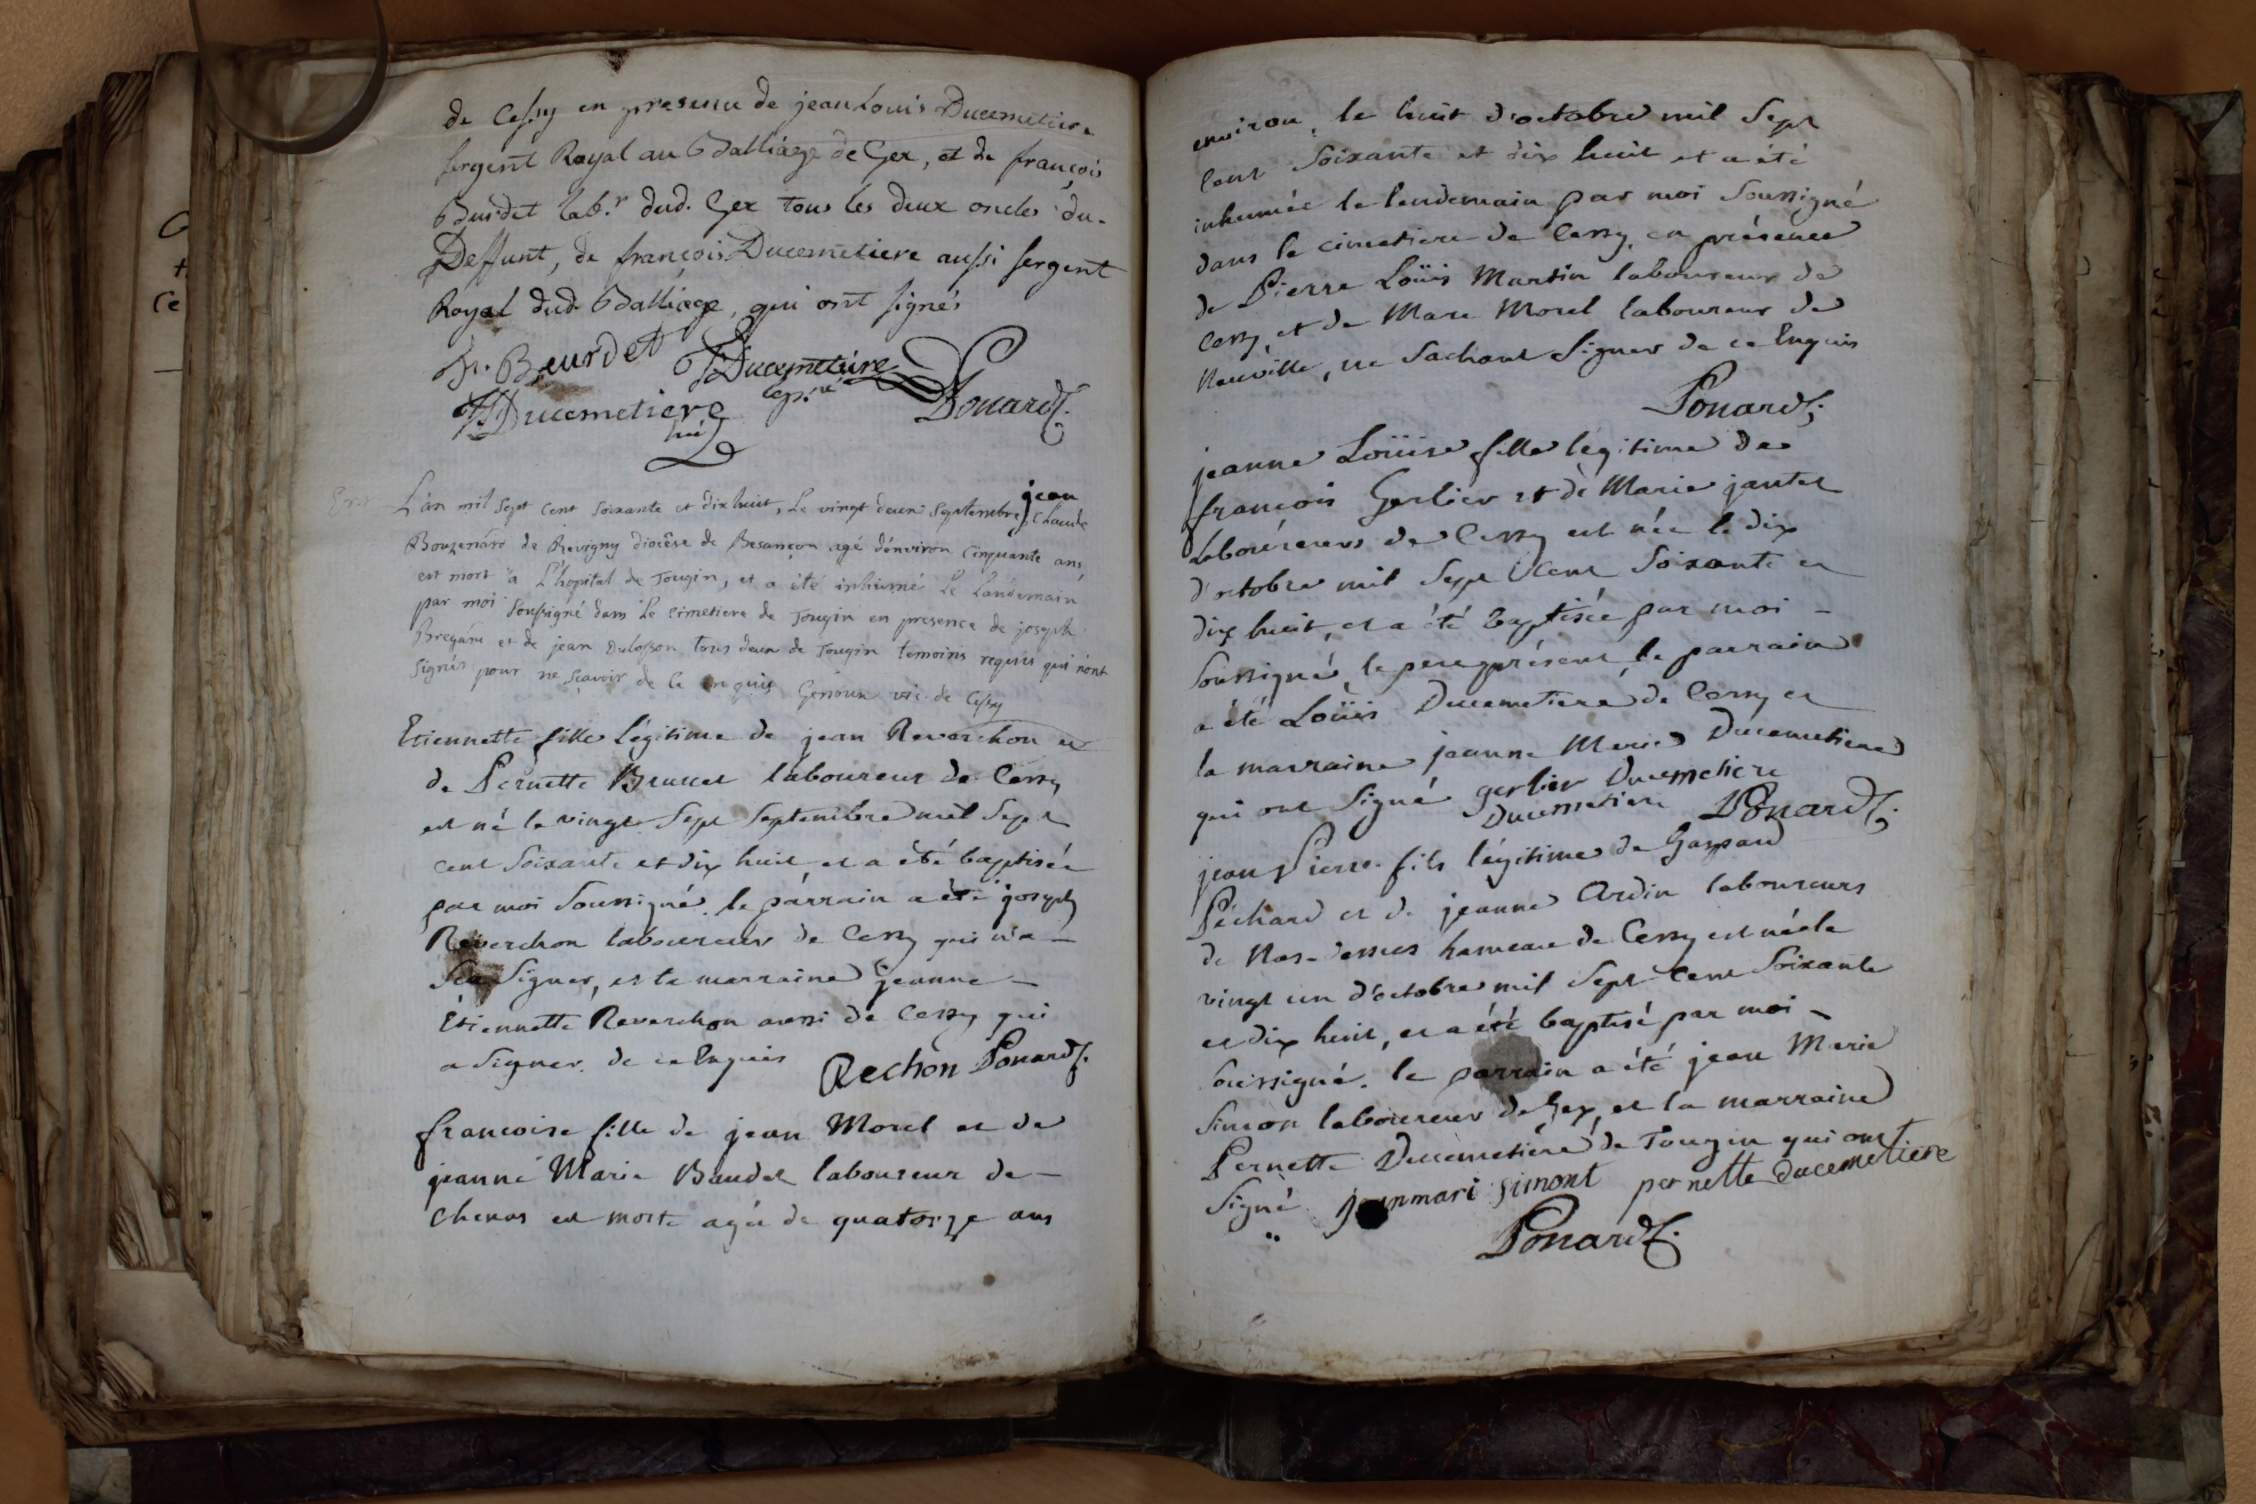 de Cessy en presence de jean Louis Ducemetiere
sergent Royal au Balliage de Gex, et de françois
Burdet lab.r dud. Gex tous les deux oncles du-
Deffunt, de françois Ducemetiere aussi sergent
Royal dud. Balliage, qui ont signés
fr. Beurdet JDucemetiere
FDucemetiere Ponard
L'an mil sept cent soixante et dix huit, Le vingt deux Septembre jean Claude
Bouzenard de Revigny diocèse de Besançon agé d'environ Cinquante ans
est mort a L'hopital de Tougin, et a été inhumé Le Landemain
par moi soussigné dans Le Cimetiere de Tougin en presence de joseph
Bregand et de jean Dulosson tous deux de Tougin temoins requis qui n'ont
signés pour ne sçavoir de ce enquis Genoux vic. de Cessy
Etiennette fille légitime de jean Reverchon et
de Pernette Brunet laboureur de Cessy
est né le vingt sept Septembre mil Sept
cent soixante et dix huit et a été baptisée
par moi Soussigné. le parrain a été joseph
Reverchon laboureur de Cessy qui n'a -
sçu signer, et la marraine jeanne -
Etiennette Reverchon aussi de Cessy qui
a signer. de ce Enquis Rechon Ponard
francoise fille de jean Morel et de
jeanne Marie Baudet laboureur de -
Chenas est morte agée de quatorze ans
environ, le huit d'octobre mil Sept
cent Soixante et dix huit et a été
inhumée le lendemain par moi Soussigné
dans le cimetiere de Cessy, en présence
de Pierre Loüis Martin laboureur de
Cessy, et de Marc Morel laboureur de
Neuville, ne Sachant Signer de ce Enquis
Ponard
jeanne Loüise fille légitime de
françois Gerlier et de Marie jantet
laboureurs de Cessy est née le dix
d'octobre mil Sept Cent Soixante et
dix huit, et a été baptisée par moi -
Soussigné, le pere présent, le parrain
a été Loüis Ducemetiere de Cessy et
la marraine jeanne Marie Ducemetiere
qui ont Signé gerlier Ducemetiere
Ducemetiere Ponard
jean Pierre fils légitime de Gaspard
Péchard et de jeanne Ardin laboureurs
de Mas-dessus hameau de Cessy est né le
vingt un d'octobre mil Sept Cent Soixante
et dix huit, et a été baptisé par moi -
Soussigné. le parrain a été jean Marie
Simon laboureur de Gex, et la marraine
Pernette Ducemetiére de Tougin qui ont
Signé. jeanmari simont pernette ducemetiere
Ponard